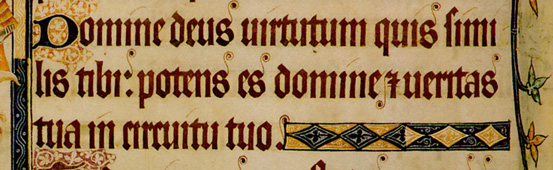 Domine deus uirtutum quis simi
lis tibi: potens es domine ⁊ ueritas
tua in circuitu tuo.